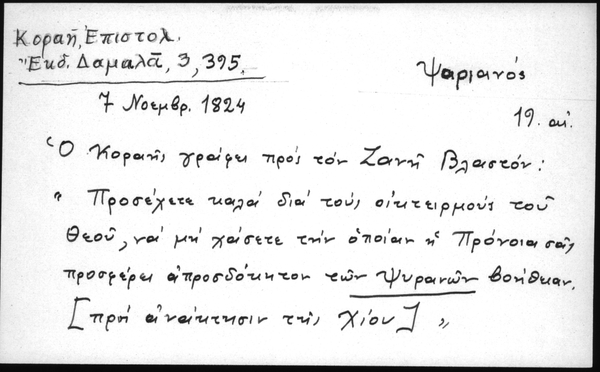 Κοραῆ, Ἐπιστολ.
Ἔκδ. Δαμαλᾶ, 3, 395.
Ψαριανός
7 Νοεμβρ. 1824
19. αἰ.
Ὁ Κοραῆς γράφει πρός τόν Ζανῆ Βλαστόν:
" Προσέχετε καλά διά τούς οἰκτειρμούς τοῦ
Θεοῦ, νά μή χάσετε τήν ὁποίαν ἡ Πρόνοια σᾶς
προσφέρει ἀπροσδόκητον τῶν Ψυρανῶν βοήθειαν.
[πρός ἀνάκτησιν τῆς Χίου] "